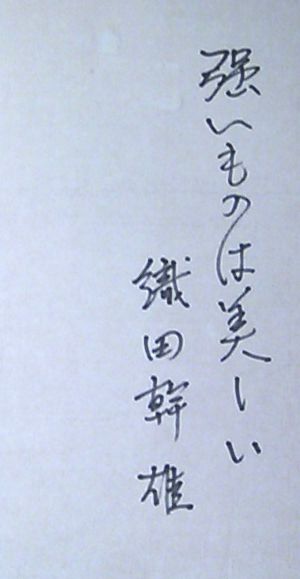 強いものは美しい
織田幹雄